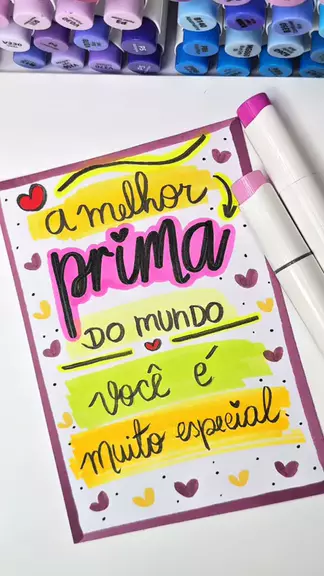 a melhor
prima
DO MUNDO
você é
muito especial.